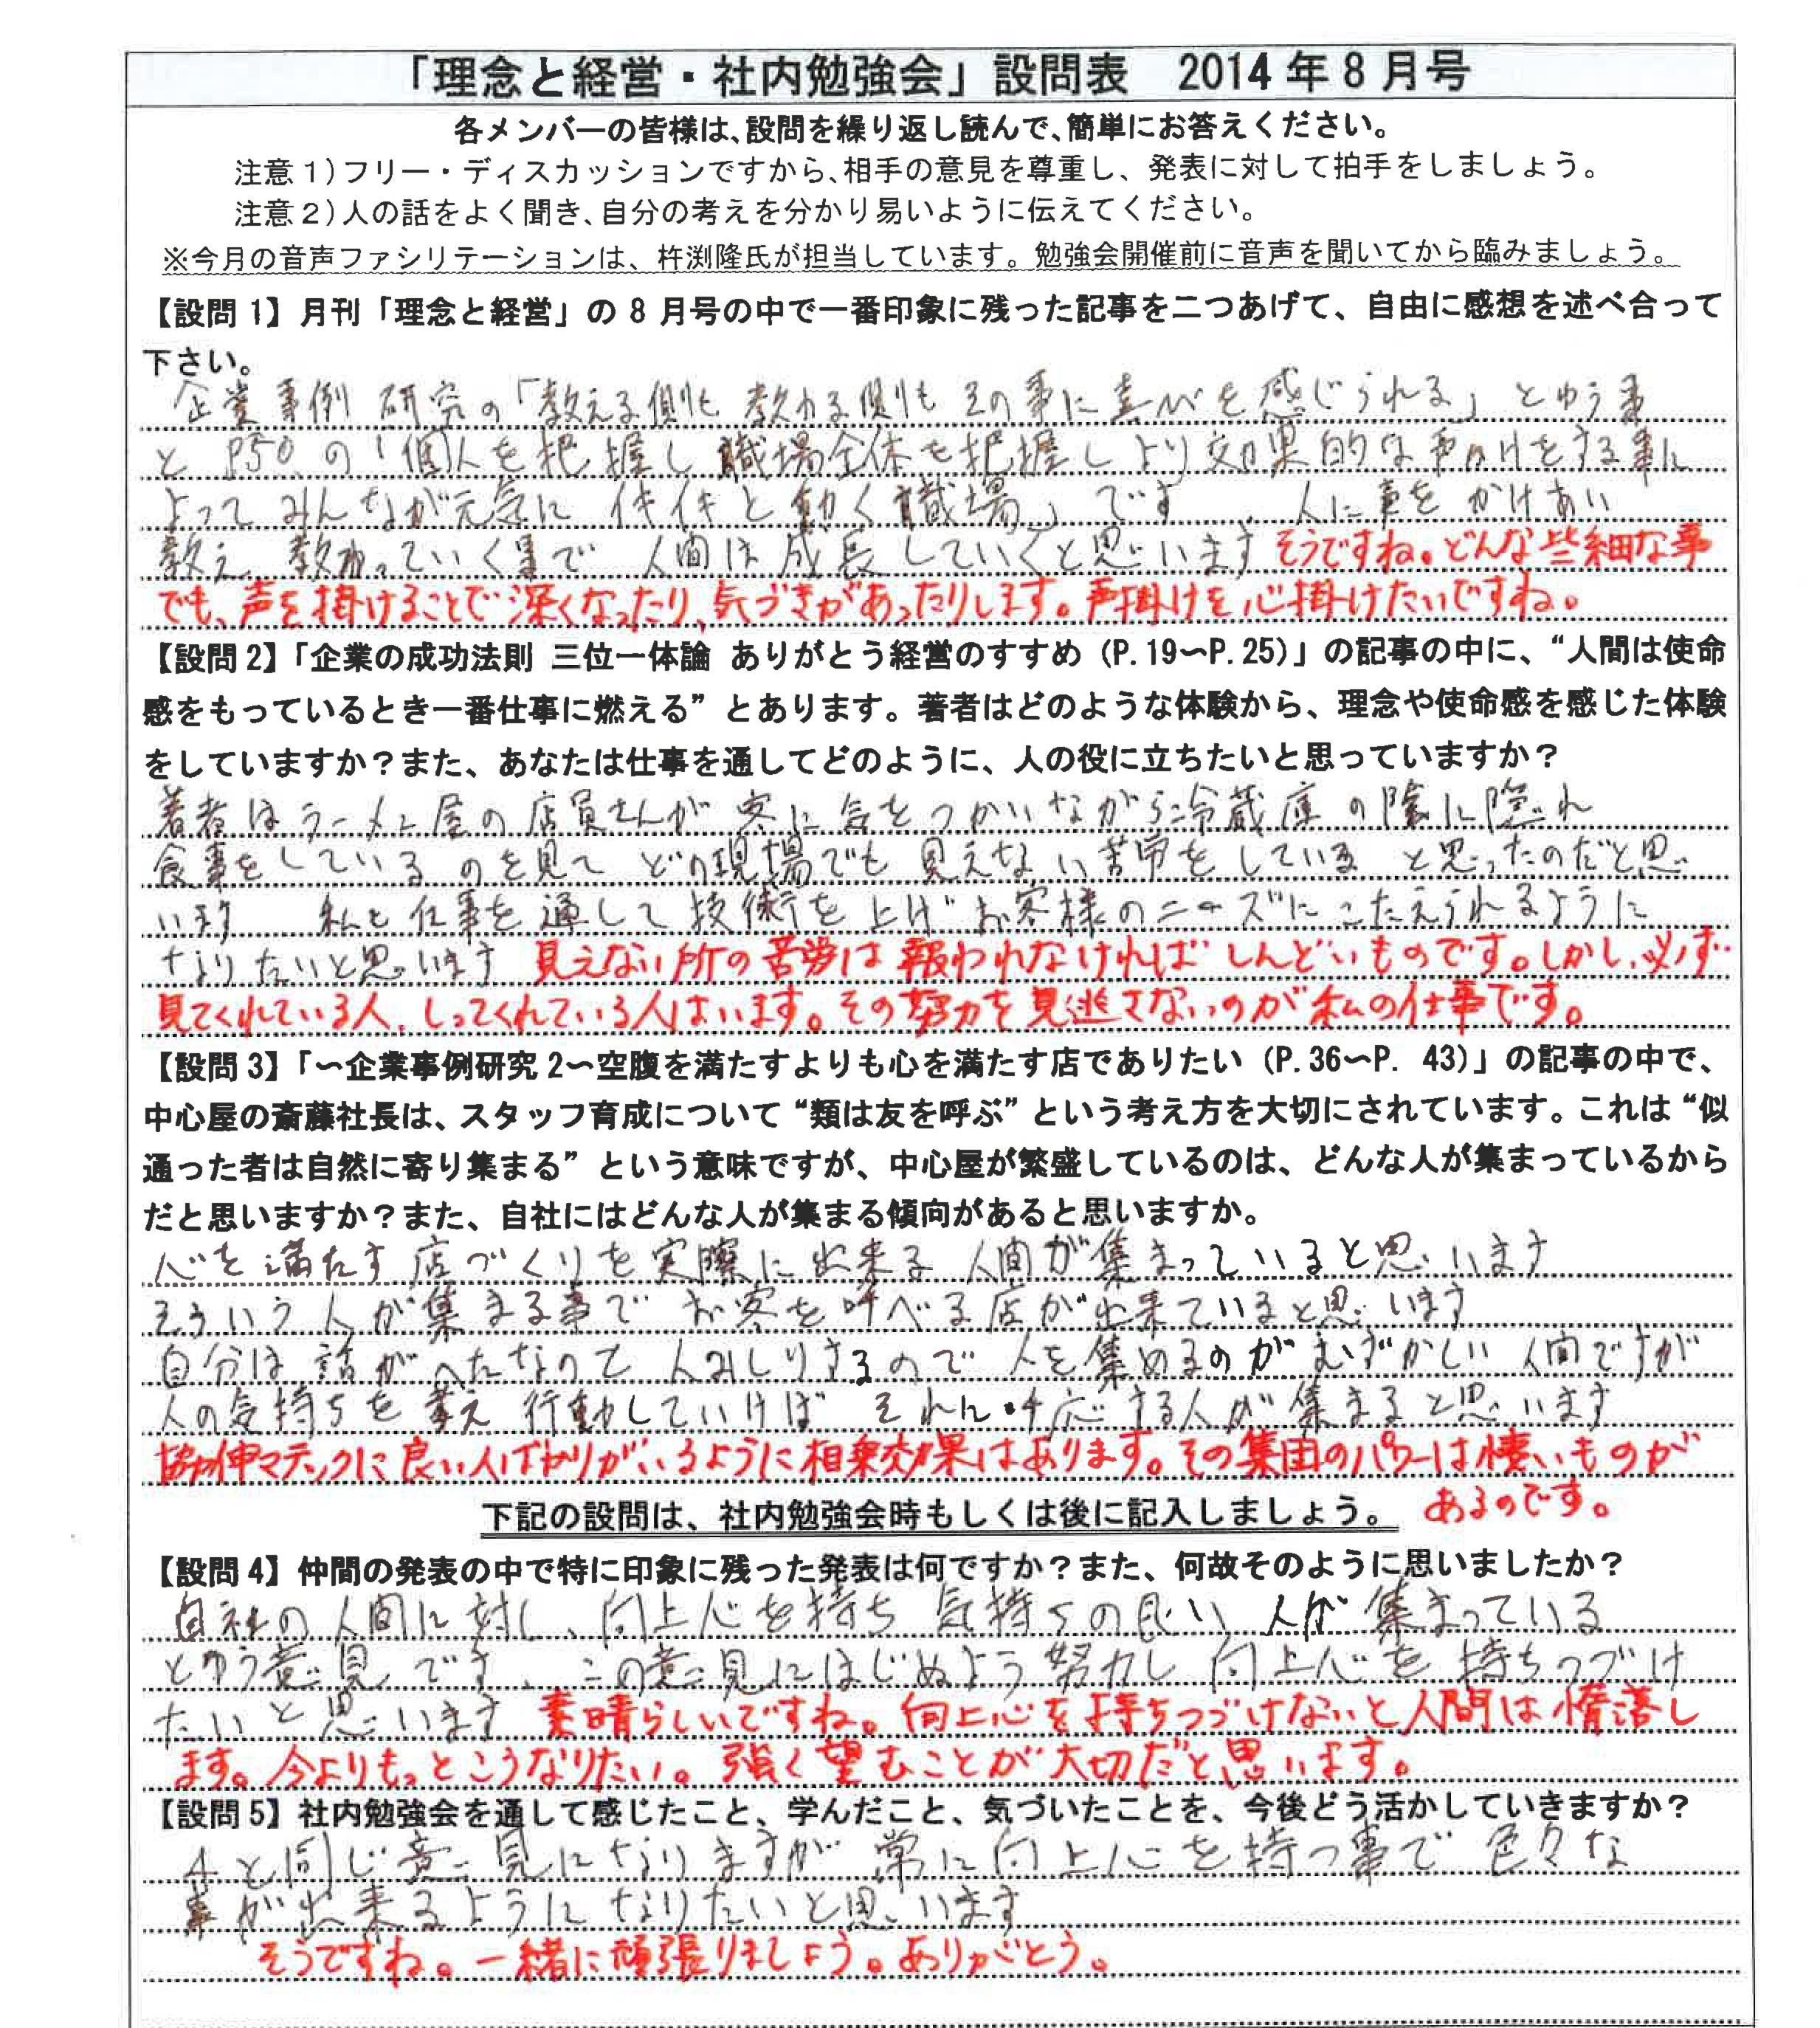 「理念と経営・社内勉強会」設問表　2014年8月号
各メンバーの皆様は、設問を繰り返し読んで、簡単にお答えください。
注意1)フリー・ディスカッションですから、相手の意見を尊重し、発表に対して拍手をしましょう。
注意2)人の話をよく聞き、自分の考えを分かり易いように伝えてください。
※今月の音声ファシリテーションは、杵渕隆氏が担当しています。勉強会開催前に音声を聞いてから臨みましょう。
【設問1】月刊「理念と経営」の8月号の中で一番印象に残った記事を二つあげて、自由に感想を述べ合って
下さい。
企業事例研究の「教える側も教わる側もその事に喜びを感じられる」とゆう事
とP50の「個人を把握し職場全体を把握しより効果的な声かけをする事に
よってみんなが元気にイキイキと動く職場」です　人に事をかけあい
教え、教わっていく事で人間は成長していくと思います そうですね。どんな些細な事
でも、声を掛けることで深くなったり、気づきがあったりします。声掛けを心掛けたいですね。
【設問2】「企業の成功法則 三位一体論 ありがとう経営のすすめ（P.19～P.25）」の記事の中に、“人間は使命
感をもっているとき一番仕事に燃える”とあります。著者はどのような体験から、理念や使命感を感じた体験
をしていますか？また、あなたは仕事を通してどのように、人の役に立ちたいと思っていますか？
著者はラーメン屋の店員さんが客に気をつかいながら冷蔵庫の陰に隠れ
食事をしているのを見て どの現場でも見えない苦労をしていると思ったのだと思
います　私も仕事を通して技術を上げお客様のニーズにこたえられるように
なりたいと思います 見えない所の苦労は報われなければしんどいものです。しかし、必ず
見てくれている人、しってくれている人はいます。その努力を見逃さないのが私の仕事です。
【設問3】「～企業事例研究2～空腹を満たすよりも心を満たす店でありたい（P.36～P. 43）」の記事の中で、
中心屋の斎藤社長は、スタッフ育成について“類は友を呼ぶ”という考え方を大切にされています。これは“似
通った者は自然に寄り集まる”という意味ですが、中心屋が繁盛しているのは、どんな人が集まっているから
だと思いますか？また、自社にはどんな人が集まる傾向があると思いますか。
心を満たす店づくりを実際に出来る人間が集まっていると思います
そういう人が集まる事でお客を呼べる店が出来ていると思います
自分は話がへたなのと人みしりするので人を集めるのがむずかしい人間ですが
人の気持ちを考え行動していけば それに 応する人が集まると思います
協伸マテックに良い人ばかりがいるように相乗効果はあります。その集団のパワーは凄いものが
あるのです。
下記の設問は、社内勉強会時もしくは後に記入しましょう。
【設問4】仲間の発表の中で特に印象に残った発表は何ですか？また、何故そのように思いましたか？
自社の人間に対し、向上心を持ち気持ちの良い人が集まっている
とゆう意見です、この意見にはじぬよう努力し向上心を持ちつづけ
たいと思います 素晴らしいですね。向上心を持ちつづけないと人間は惰落し
ます。今よりもっとこうなりたい。強く望むことが大切だと思います。
【設問5】社内勉強会を通して感じたこと、学んだこと、気づいたことを、今後どう活かしていきますか？
4と同じ意見になりますが常に向上心を持つ事で色々な
事が出来るようになりたいと思います
そうですね。一緒に頑張りましょう。ありがとう。